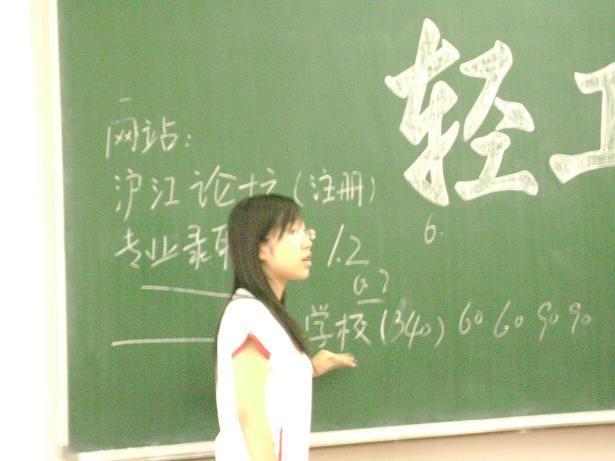 轻工
网站:
沪江论坛(注册)
专业录取 1.2
6.
0.7
学校(340) 60 60 90 90